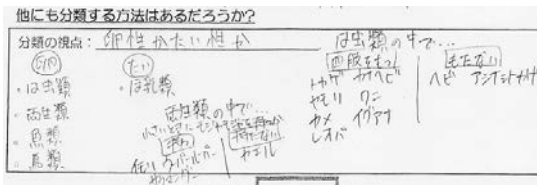 他にも分類する方法はあるだろうか?
分類の視点: 卵性かたい性か
卵
・は虫類
・両生類
・魚類
・鳥類
たい
・ほ乳類
両生類の中で…
持つ
持たない
イモリ ウーパールーパー
カエル
は虫類の中で…
四肢をもつ
トカゲ カナヘビ
ヤモリ ワニ
カメ イグアナ
レオパ
もたない
ヘビ アシナシトカゲ